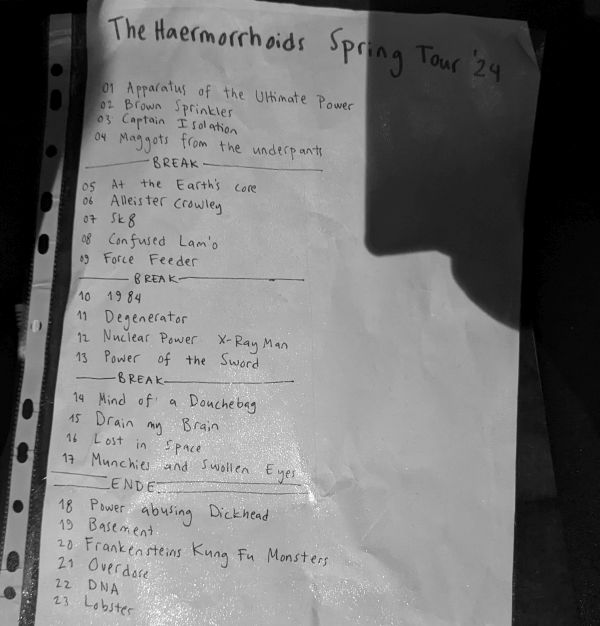 The Haermorrhoids Spring Tour '24
01 Apparatus of the Ultimate Power
02 Brown Sprinkles
03 Captain Isolation
04 Maggots from the underpants
BREAK
05 At the Earth's core
06 Alleister Crowley
07 Sk8
08 Confused Lam'o
09 Force Feeder
BREAK
10 1984
11 Degenerator
12 Nuclear Power X-Ray Man
13 Power of the Sword
BREAK
14 Mind of a Douchebag
15 Drain my Brain
16 Lost in Space
17 Munchies and Swollen Eyes
ENDE
18 Power abusing Dickhead
19 Basement
20 Frankensteins Kung Fu Monsters
21 Overdose
22 DNA
23 Lobster